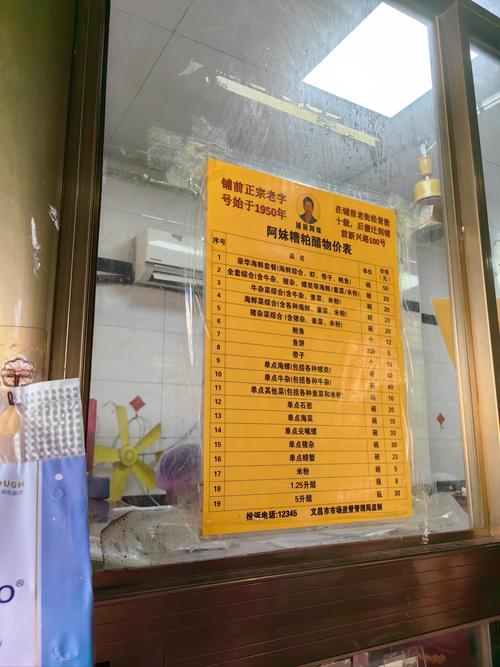 铺前正宗老字
号始于1950年
铺前阿妹
在铺前老街经营数
十载，后搬迁到铺
前新兴路100号
阿妹糟粕醋物价表
序号 品名 单位 价格(元)
1 豪华海鲜套餐(海鲜综合、虾、带子、鲍鱼) 碗 50
2 全套综合(含牛杂、猪杂、螺类等海鲜/素菜/米粉) 碗 20
3 牛杂菜综合(含牛杂、素菜、米粉) 碗 20
4 海鲜菜综合(含各种海鲜、素菜、米粉) 碗 20
5 猪杂菜综合(含猪杂、素菜、米粉) 碗 20
6 鲍鱼 个 12
7 鱼饼 5
8 带子 个
9 单点海螺(包括各种螺类) 碗 40
10 单点牛杂(包括各种牛杂) 碗 40
11 单点其他菜(包括各种素菜和米粉) 碗 10
12 单点石葱 碗 20
13 单点海菜 碗 10
14 单点尖嘴螺 碗 30
15 单点猪杂 碗 30
16 单点螃蟹 碗 20
17 米粉 碗 5
18 1.25升醋 瓶 8
19 5升醋 瓶 30
投诉电话:12345 文昌市市场监督管理局监制
OUGH
o®